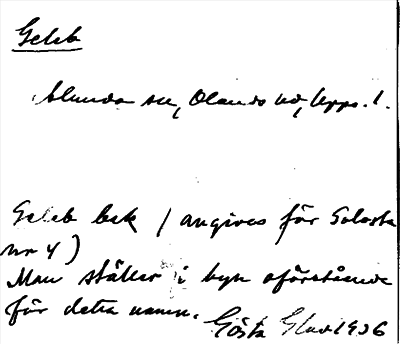 Geleb
Alunda sn, Olands hd, Upps. l.
Geleb bek / angives för Golvsta
nr 4)
Man ställer i byn oförstående
för detta namn.
Gösta Glad 1936